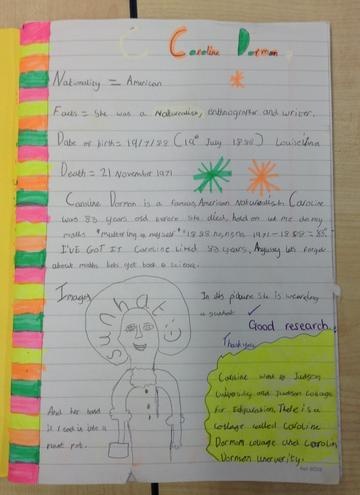 Caroline Dorman
Nationality = American
Facts = She was a Naturalist, enthnographer and writer.
Date of birth = 19/7/88 (19th July 1888) Louisiana
Death = 21 November 1971
Caroline Dorman is a famous American Naturalist. Caroline
was 83 years old before she died, hold on let me do my
maths "muttering to myself" 1971 - 1888 = 83
I'VE GOT IT Caroline lived 83 years. Anyway lets forget
about maths lets get back to science.
Images
sunhat :-)
In this picture She is wearing
a sunhat ✓
Good research.
Thankyou
And her hand
is in a
plant pot.
Caroline went to Judson
University and Judson Collage
for Education. There is a
collage called Caroline
Dorman collage and Carolin
Dorman university.